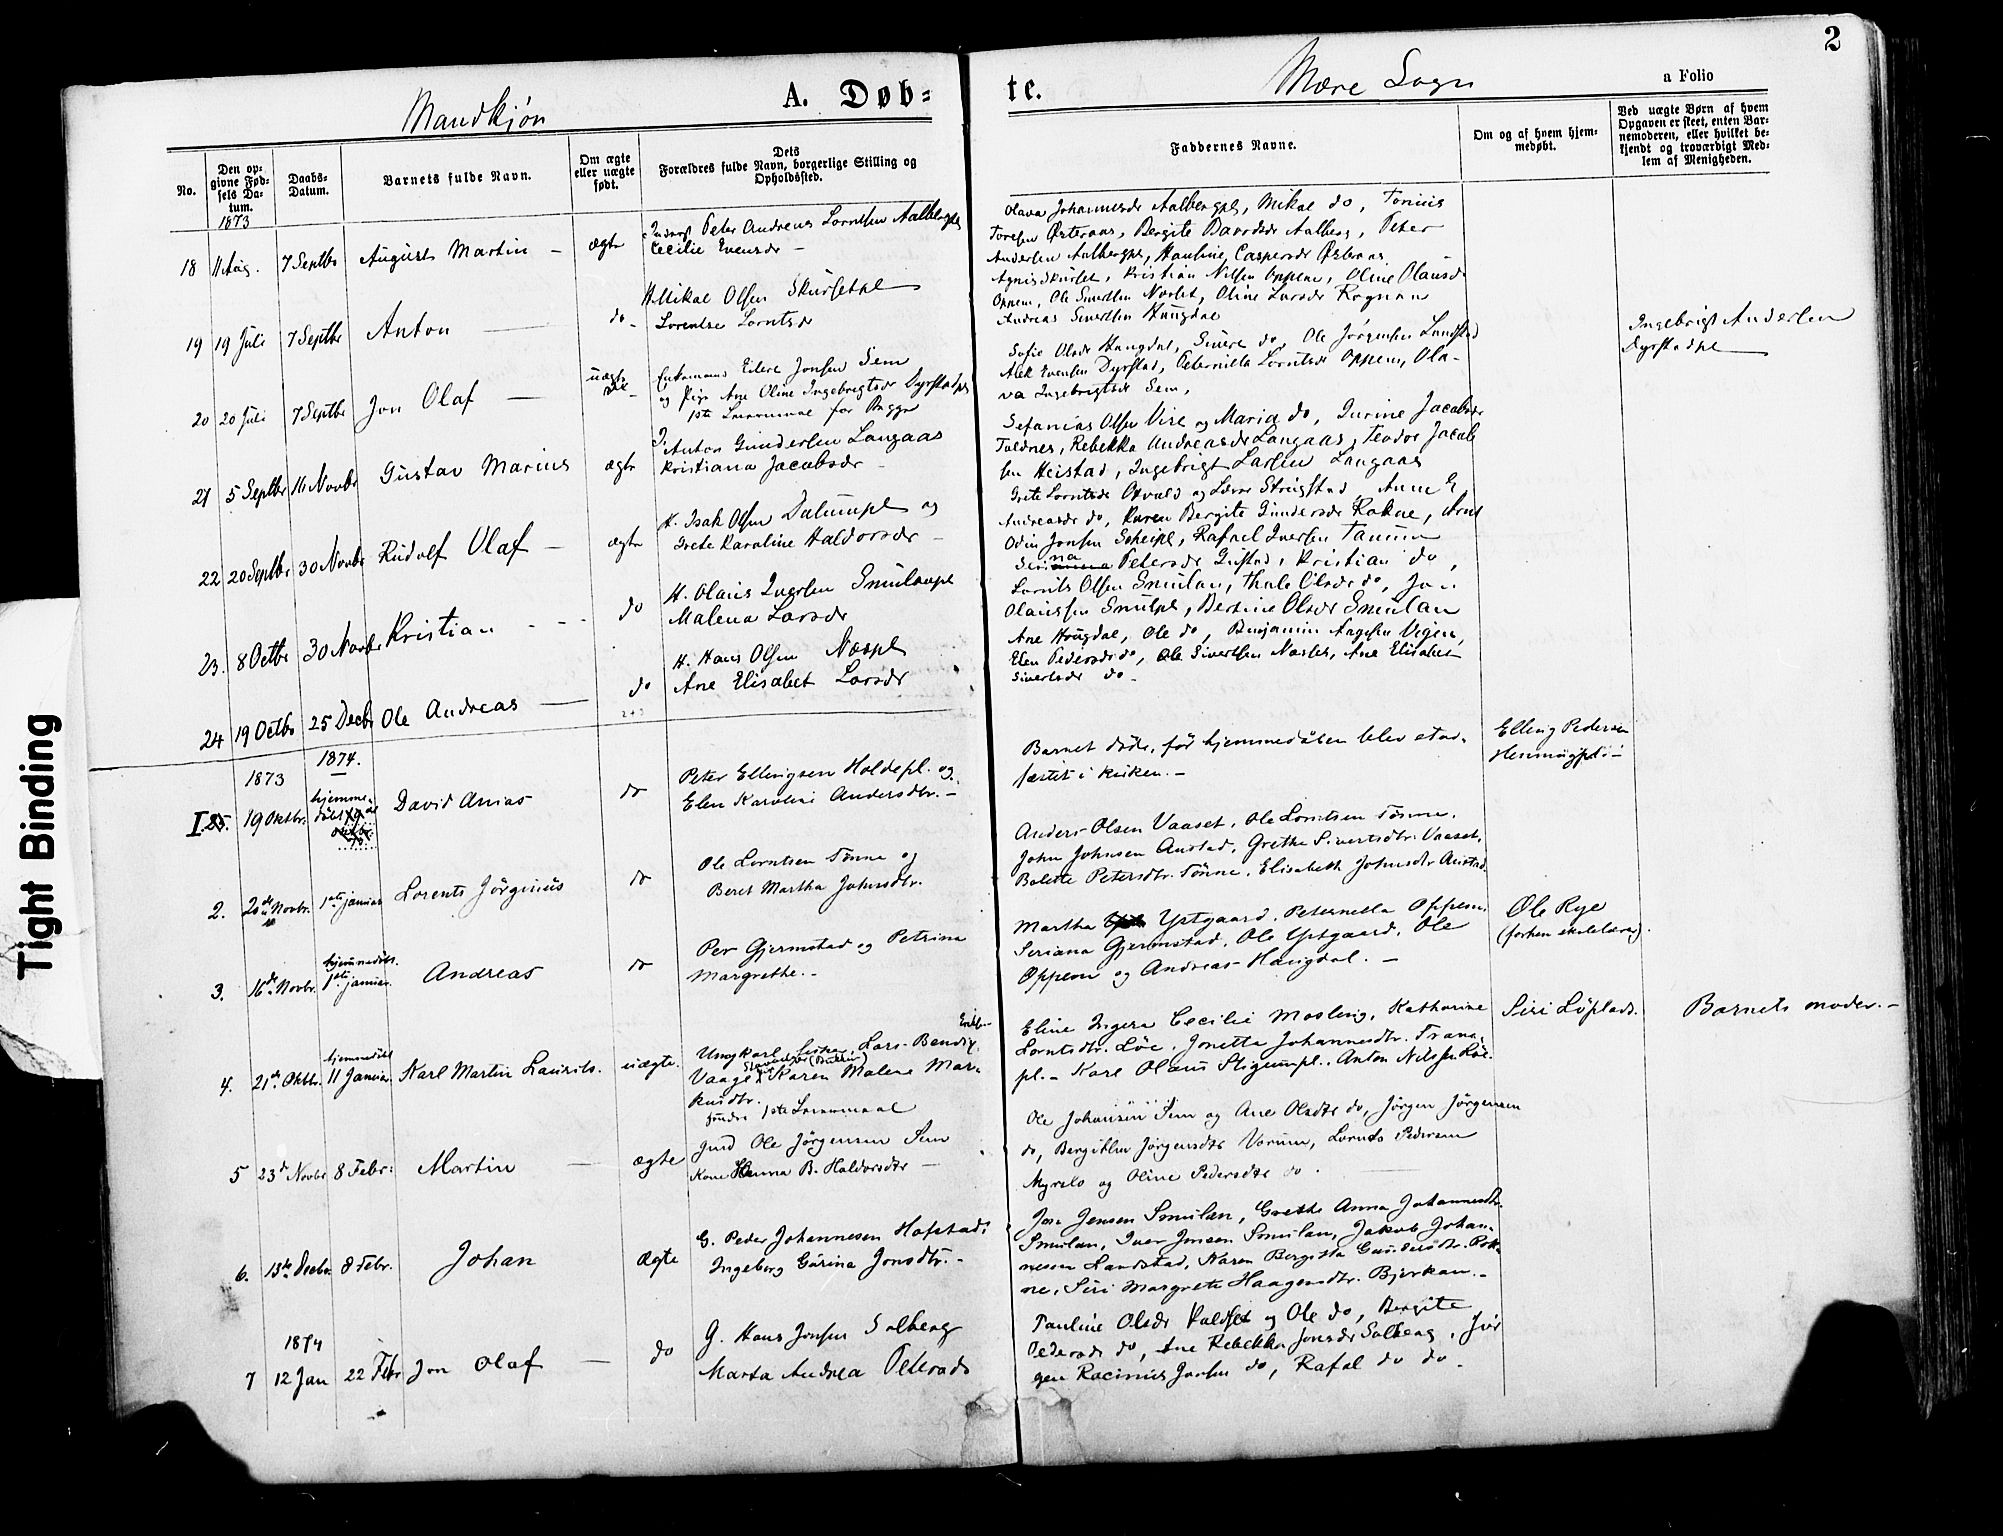 2
Mandkjøn
A. Døb=
te.
Mære Sogn
a Folio
No.
Den op-
givne Fød-
sels Da-
tum.
Daabs-
Datum.
Barnets fulde Navn.
Om ægte
eller uægte
født.
Dets
Forældres fulde Navn, borgerlige Stilling og
Opholdssted.
Faddernes Navne.
Om og af hvem hjem-
medøbt.
Ved uægte Børn af hvem
Opgaven er skeet, enten Bar-
nemoderen, eller hvilket be-
kjendt og troværdigt Med-
lem af Menigheden.
1873
18 11 Aug. 7 Septbr August Martin – ægte
Peter Andreas Lorntsen Aalbergpl
Cecilie Evensdr –
Olava Johannesdr Aalbergpl, Mikal do, Tonius
Toresen Østeraas, Bergite Baardsdr Aalberg, Peter
Andersen Aalbergpl, Hauline Caspersdr Østeraas
19 19 Juli 7 Septbr Anton do –
H. Mikal Olsen Skursetpl
Lorentse Lorntsdr
Agnis Skurset, Kristian Nilsen Oppem, Oline Olausdr
Oppem, Ole Sivertsen Naslet, Oline Larsdr Rognan
Andreas Sivertsen Haugdal
20 20 Juli 7 Septbr Jon Olaf – uægte
Enkemand Eilert Jonsen Sem
og Pige Ane Oline Ingebrigtsdr Dyrstadpl
1ste Leiermaal for Begge
Sofie Olsdr Haugdal, Sivert do, Ole Jørgensen Lundstad
Alek Evensen Dyrstad, Peternilla Lorntsdr Oppem, Ola-
va Ingebrigtsdr Sem,
Ingebrigt Andersen
Dyrstadpl
21 5 Septbr 16 Novbr Gustav Marius ægte
Anton Gundersen Langaas
Kristiana Jacobsdr –
Sefanias Olsen Vise og Maria do, Jurine Jacobsdr
Tuldnes, Rebekka Andreasdr Langaas, Teodor Jacob
sen Heistad, Ingebrigt Larsen Langaas
22 20 Septbr 30 Novbr Rudolf Olaf – ægte
H. Isak Olsen Dalumpl og
Grete Karoline Haldorsdr –
Grete Lorntsdr Oxvald og Lasse Strugstad, Anne E
Andreasdr do, Karen Bergite Gundersdr Rokne, Arnt
Odin Jonsen Scheipl, Rafael Iversen Tanum
23. 8 Octbr 30 Novbr Kristian – – – do
H. Olaus Iversen Smulanpl
Malena Larsdr
Petersdr Gustad, Kristian do,
Lornts Olsen Smulan, Thale Olsdr do, Jon
Olaussen Smulpl, Bertine Olsdr Smulan
24 19 Octbr 25 Decbr Ole Andreas – do
H. Hans Olsen Næspl
Ane Elisabet Larsdr
Ane Hougdal, Ole do, Benjamin Aagesen Vigen,
Elen Pedersdr do, Ole Sivertsen Naslet, Ane Elisabet
Sivertsdr do –
1873 1874.
I. 25. 19 Oktbr. hjemme-
døbt 19de
oktbr.
David Anias do
Peter Ellingsen Holdepl. og
Elen Karoline Andersdtr. –
Barnet døde, før hjemmedåben blev stad-
fæstet i kirken. –
Elling Pedersen
2. 20de Novbr. 1ste januar Lorents Jörginus do
Ole Lorntsen Tönne og
Beret Martha Johnsdtr.
Anders Olsen Vaaset, Ole Lorntsen Tönne,
John Johnsen Austad, Grethe Sivertsdtr. Vaaset,
Bolette Petersdtr. Tönne, Elisabeth Johnsdtr Austad.
3. 16de Novbr. hjemmedöbt.
1ste januar.
Andreas do
Per Gjermstad og Petrina
Margrethe. –
Martha Ystgaard, Peternella Oppem,
Seriana Gjermstad, Ole Ystgaard, Ole
Oppem og Andreas Haugdal. –
Ole Rye
(forhen skolelærer).
4. 21de Oktbr. hjemmedöbt
11 Januar. Karl Martin Laurits. uægte.
Ungkarl Lars Bendix
Vaage Karen Malene Mar-
kusdtr.
1ste Leiermaal
Eline Ingera Cecilie Mosling, Katharine
Lorntsdtr. Löe, Jonetta Johannesdtr. Trana-
pl. – Karl Olaus Stigumpl., Anton Nilssen Löe-
pl.
Siri Löplads.
Barnets moder. –
5 23de Novbr 8 Febr: Martin – ægte
Gmd Ole Jörgensen Sem
Kone Hanna B. Haldorsdtr –
Ole Johansen Sem og Ane Olsdtr do, Jörgen Jörgensen
do, Bergithe Jörgensdtr Vorum, Lornts Pedersen
Myrslo og Oline Pedersdtr do.
6. 13de Decbr. 8 Febr. Johan Ægte
G. Peder Johannesen Hofstad,
Ingeborg Gurina Jonsdtr. –
Jon Jensen Smulan, Grethe Anna Johannesdtr.
Smulan, Iver Jonsen Smulan, Jakob Johan-
nesen Landstad, Karen Bergitta Gundersdtr. Rok-
ne, Siri Margrete Haagensdtr. Bjerkan. –
1874
7 12 Jan 22 Febr Jon Olaf – do
G. Hans Jonsen Solberg
Marta Andrea Petersdr
Pauline Olsdr Kaldset og Ole do, Bergite
Pedersdr do, Ane Rebekka Jonsdr Solberg, Jør
gen Racinius Jonsen do, Rafael do do.
Tight Binding